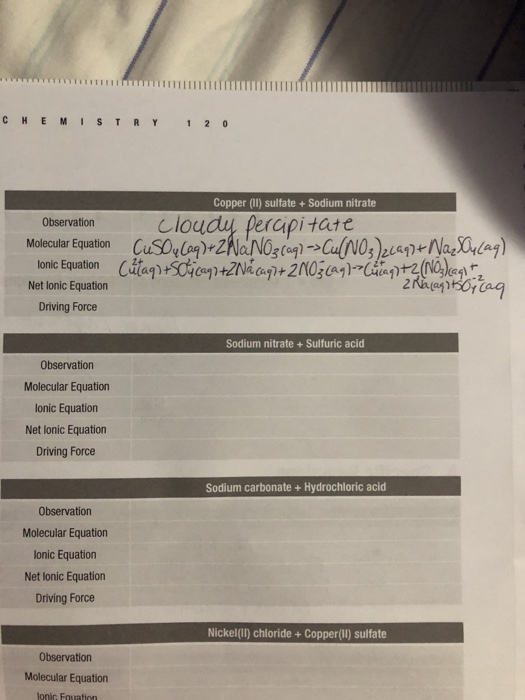 CHEMISTRY 120
Copper (II) sulfate + Sodium nitrate
Observation cloudy percipitate
Molecular Equation CuSO4(aq)+2NaNO3(aq)->Cu(NO3)2(aq)+Na2SO4(aq)
Ionic Equation Cu2+(aq)+SO4(aq)+2Na+(aq)+2NO3-(aq)->Cu2+(aq)+2(NO3-)(aq)+
Net Ionic Equation 2Na(aq)+SO4-2(aq
Driving Force
Sodium nitrate + Sulfuric acid
Observation
Molecular Equation
Ionic Equation
Net Ionic Equation
Driving Force
Sodium carbonate + Hydrochloric acid
Observation
Molecular Equation
Ionic Equation
Net Ionic Equation
Driving Force
Nickel(II) chloride + Copper(II) sulfate
Observation
Molecular Equation
Ionic Equation